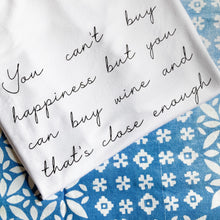 You can't buy
happiness but you
can buy wine and
that's close enough